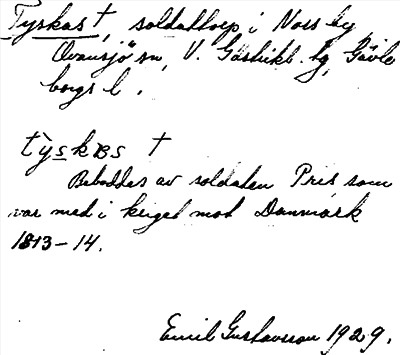 Tyskas †, soldattorp i Nors by,
Ovansjö sn, V. Gästrikl. tg, Gävle
borgs l.
tỳskas †
Bebøddes av soldaten Pris som
var med i kriget mot Danmark
1813-14.
Emil Gustavsson 1929.